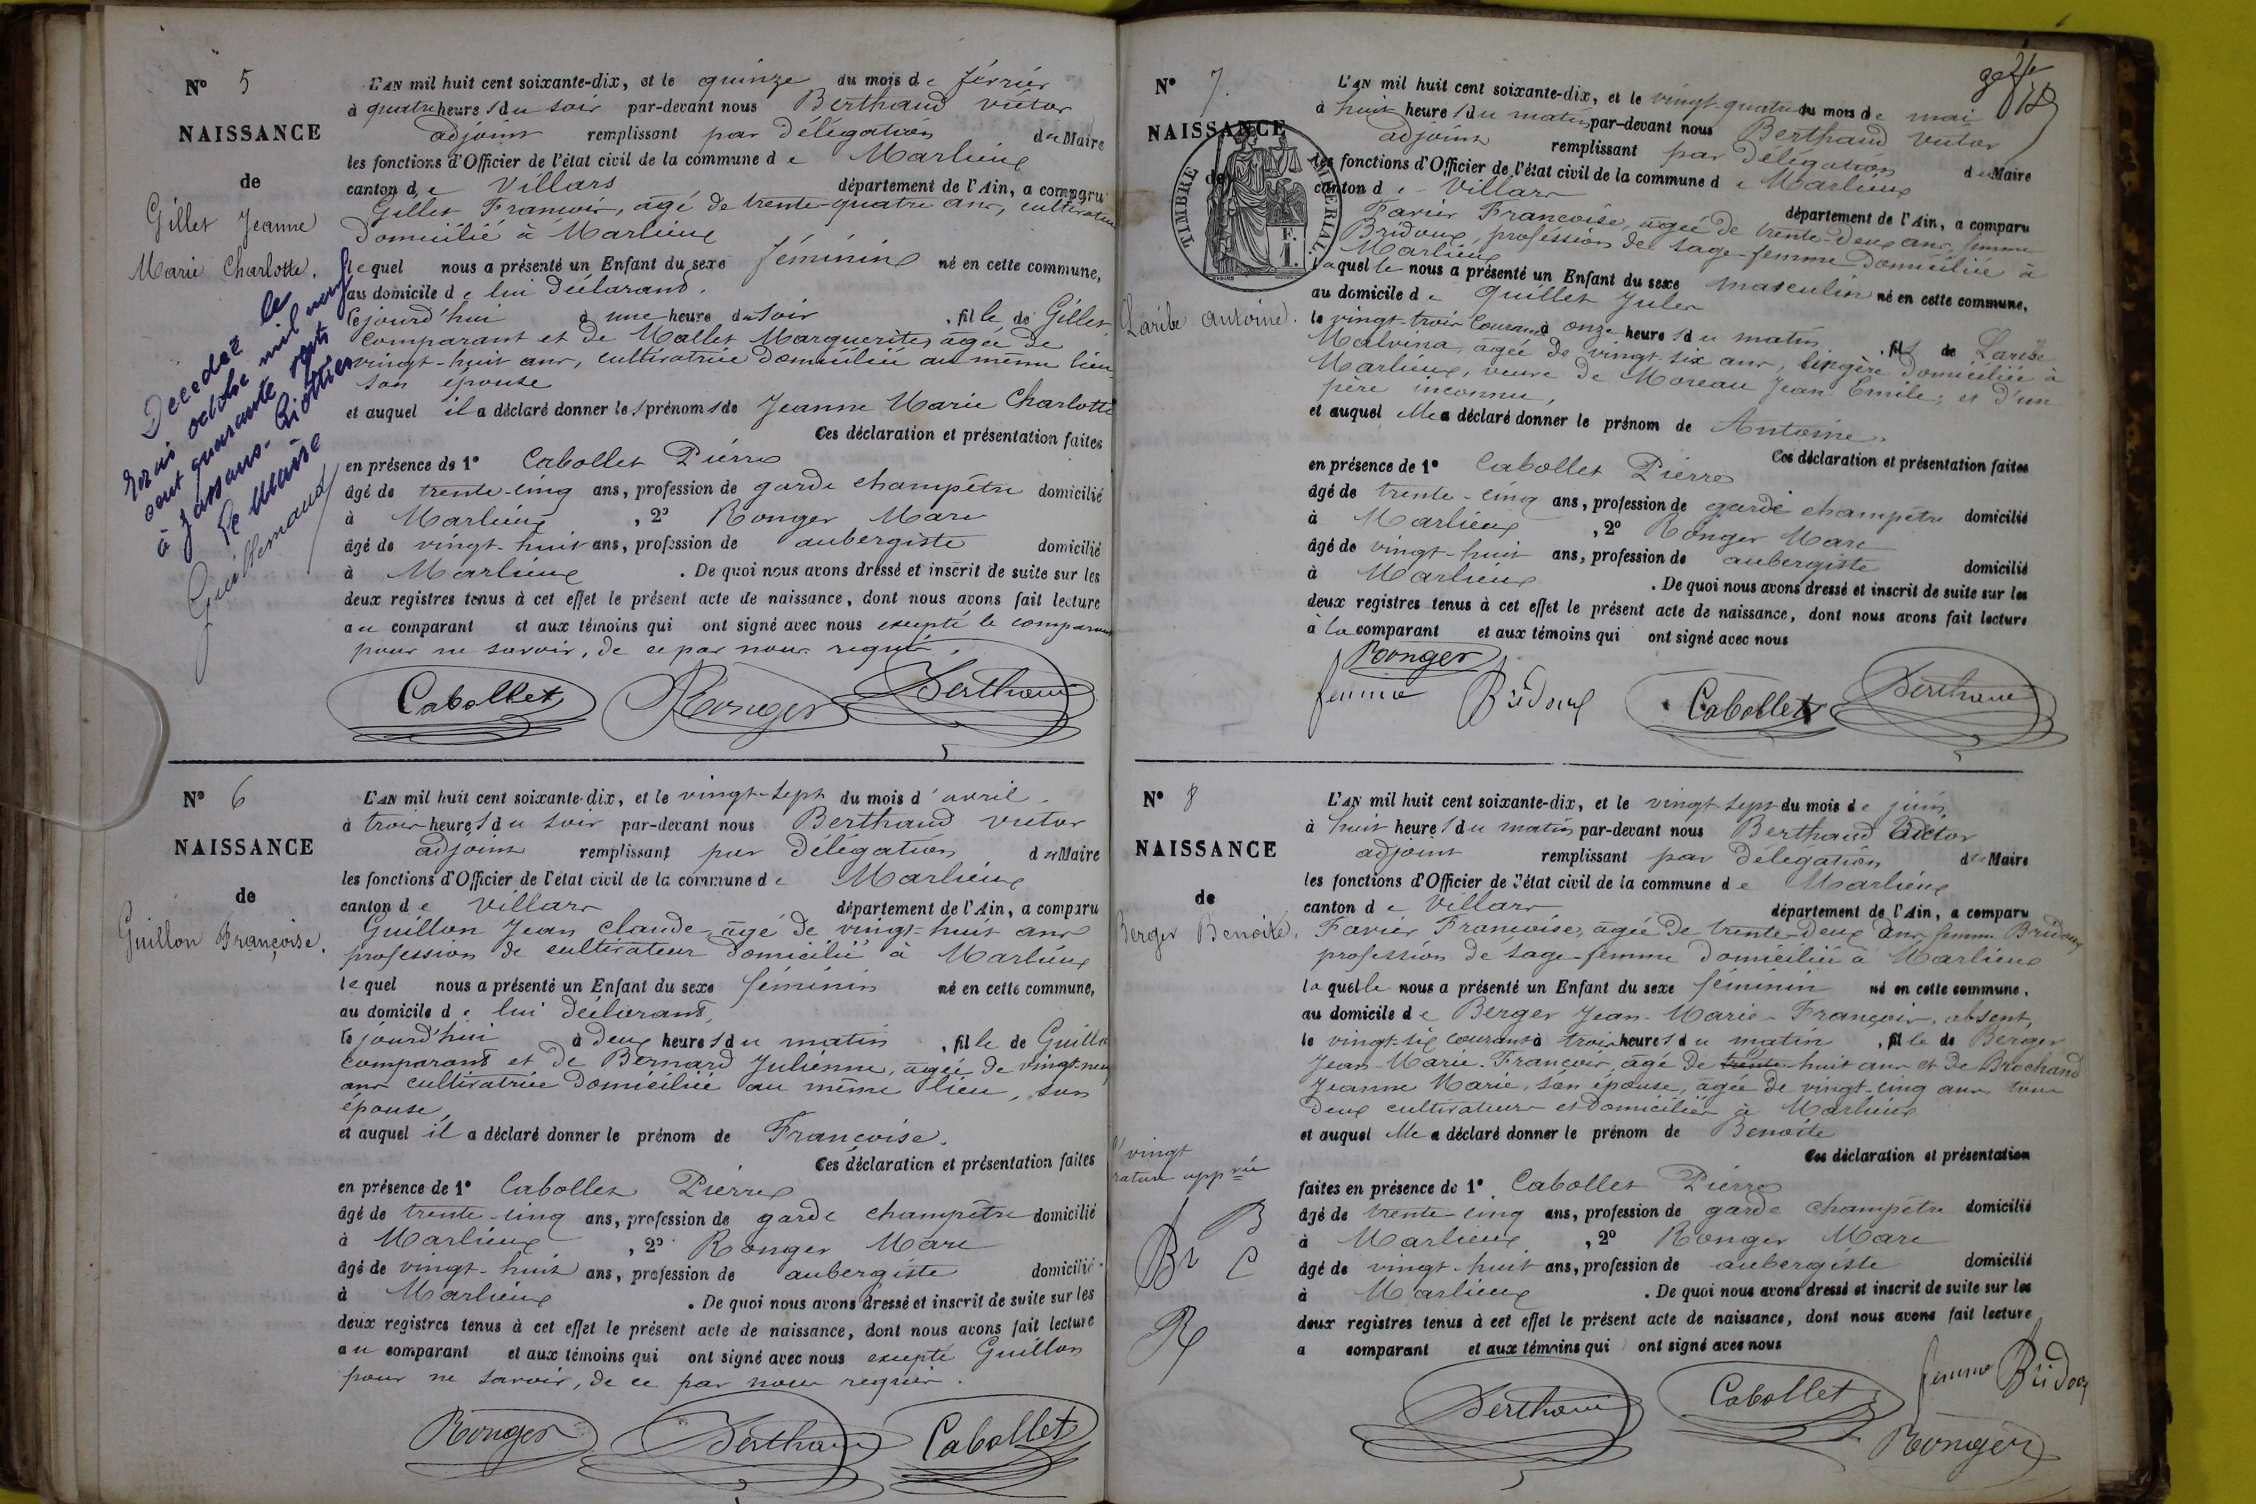 N° 5
NAISSANCE
de
Gillet Jeanne
Marie Charlotte.
Decedée le
trois octobre mil neuf
cent quarante sept
à Jassans-Riottier
Le Maire
Guillemaud
L'AN mil huit cent soixante-dix, et le quinze du mois de février
à quatre heures du soir par-devant nous Berthaud victor
adjoint remplissant par délégation du Maire
les fonctions d'Officier de l'état civil de la commune de Marlieux
canton de Villars département de l'Ain, a comparu
Gillet François, âgé de trente-quatre ans, cultivateur
domicilié à Marlieux
lequel nous a présenté un Enfant du sexe féminin né en cette commune,
au domicile de lui déclarant.
le jourd'hui à une heure du soir, fille de Gillet
comparant et de Mallet Marguerite, âgée de
vingt-huit ans, cultivatrice domiciliée au même lieu
son épouse
et auquel il a déclaré donner les prénoms de Jeanne Marie Charlotte
Ces déclaration et présentation faites
en présence de 1° Cabollet Pierre
âgé de trente-cinq ans, profession de garde champêtre domicilié
à Marlieux, 2° Ronger Marc
âgé de vingt-huit ans, profession de aubergiste domicilié
à Marlieux. De quoi nous avons dressé et inscrit de suite sur les
deux registres tenus à cet effet le présent acte de naissance, dont nous avons fait lecture
au comparant et aux témoins qui ont signé avec nous excepté le comparant
pour ne savoir, de ce par nous requis.
Cabollet Ronger Berthaud
N° 6
NAISSANCE
de
Guillon Françoise.
L'AN mil huit cent soixante-dix, et le vingt-sept du mois d'avril.
à trois heures du soir par-devant nous Berthaud victor
adjoint remplissant par délégation du Maire
les fonctions d'Officier de l'état civil de la commune de Marlieux
canton de Villars département de l'Ain, a comparu
Guillon Jean Claude âgé de vingt-huit ans
profession de cultivateur domicilié à Marlieux
lequel nous a présenté un Enfant du sexe féminin né en cette commune,
au domicile de lui déclarant,
le jourd'hui à deux heures du matin, fille de Guillon
comparant et de Bernard Julienne, âgée de vingt-neuf
ans cultivatrice domiciliée au même lieu, son
épouse,
et auquel il a déclaré donner le prénom de Françoise.
Ces déclaration et présentation faites
en présence de 1° Cabollet Pierre
âgé de trente-cinq ans, profession de garde champêtre domicilié
à Marlieux, 2° Ronger Marc
âgé de vingt-huit ans, profession de aubergiste domicilié
à Marlieux. De quoi nous avons dressé et inscrit de suite sur les
deux registres tenus à cet effet le présent acte de naissance, dont nous avons fait lecture
au comparant et aux témoins qui ont signé avec nous excepté Guillon
pour ne savoir, de ce par nous requis.
Ronger Berthaud Cabollet
N° 7.
NAISSANCE
de
TIMBRE IMPÉRIAL
Laribe Antoine.
L'AN mil huit cent soixante-dix, et le vingt-quatre du mois de mai
à huit heures du matin par-devant nous Berthaud victor
adjoint remplissant par délégation du Maire
les fonctions d'Officier de l'état civil de la commune de Marlieux
canton de Villars département de l'Ain, a comparu
Favier Françoise, âgée de trente-deux ans, femme
Bridoux, profession de sage-femme domiciliée à
Marlieux
laquelle nous a présenté un Enfant du sexe masculin né en cette commune,
au domicile de Guillet Jules
le vingt-trois courant à onze heures du matin, fils de Laribe
Malvina, âgée de vingt-six ans, lingère domiciliée à
Marlieux, veuve de Moreau Jean Emile; et d'un
père inconnu,
et auquel elle a déclaré donner le prénom de Antoine.
Ces déclaration et présentation faites
en présence de 1° Cabollet Pierre
âgé de trente-cinq ans, profession de garde champêtre domicilié
à Marlieux, 2° Ronger Marc
âgé de vingt-huit ans, profession de aubergiste domicilié
à Marlieux. De quoi nous avons dressé et inscrit de suite sur les
deux registres tenus à cet effet le présent acte de naissance, dont nous avons fait lecture
à la comparant et aux témoins qui ont signé avec nous
Ronger
femme Bridoux Cabollet Berthaud
N° 8
NAISSANCE
de
Berger Benoite.
L'AN mil huit cent soixante-dix, et le vingt-sept du mois de juin
à huit heures du matin par-devant nous Berthaud Victor
adjoint remplissant par délégation du Maire
les fonctions d'Officier de l'état civil de la commune de Marlieux
canton de Villars département de l'Ain, a comparu
Favier Françoise, âgée de trente-deux ans, femme Bridoux
profession de sage-femme domiciliée à Marlieux
laquelle nous a présenté un Enfant du sexe féminin né en cette commune,
au domicile de Berger Jean-Marie-François, absent,
le vingt-six courant à trois heures du matin, fille de Berger
Jean-Marie-François, âgé de trente-huit ans et de Brochand
Jeanne Marie, son épouse, âgée de vingt-cinq ans tous
deux cultivateurs et domiciliés à Marlieux
et auquel elle a déclaré donner le prénom de Benoite
Ces déclaration et présentation
vingt
rature appvée
B
Br C
R
faites en présence de 1° Cabollet Pierre
âgé de trente-cinq ans, profession de garde champêtre domicilié
à Marlieux, 2° Ronger Marc
âgé de vingt-huit ans, profession de aubergiste domicilié
à Marlieux. De quoi nous avons dressé et inscrit de suite sur les
deux registres tenus à cet effet le présent acte de naissance, dont nous avons fait lecture
a comparant et aux témoins qui ont signé avec nous
Berthaud Cabollet femme Bridoux
Ronger